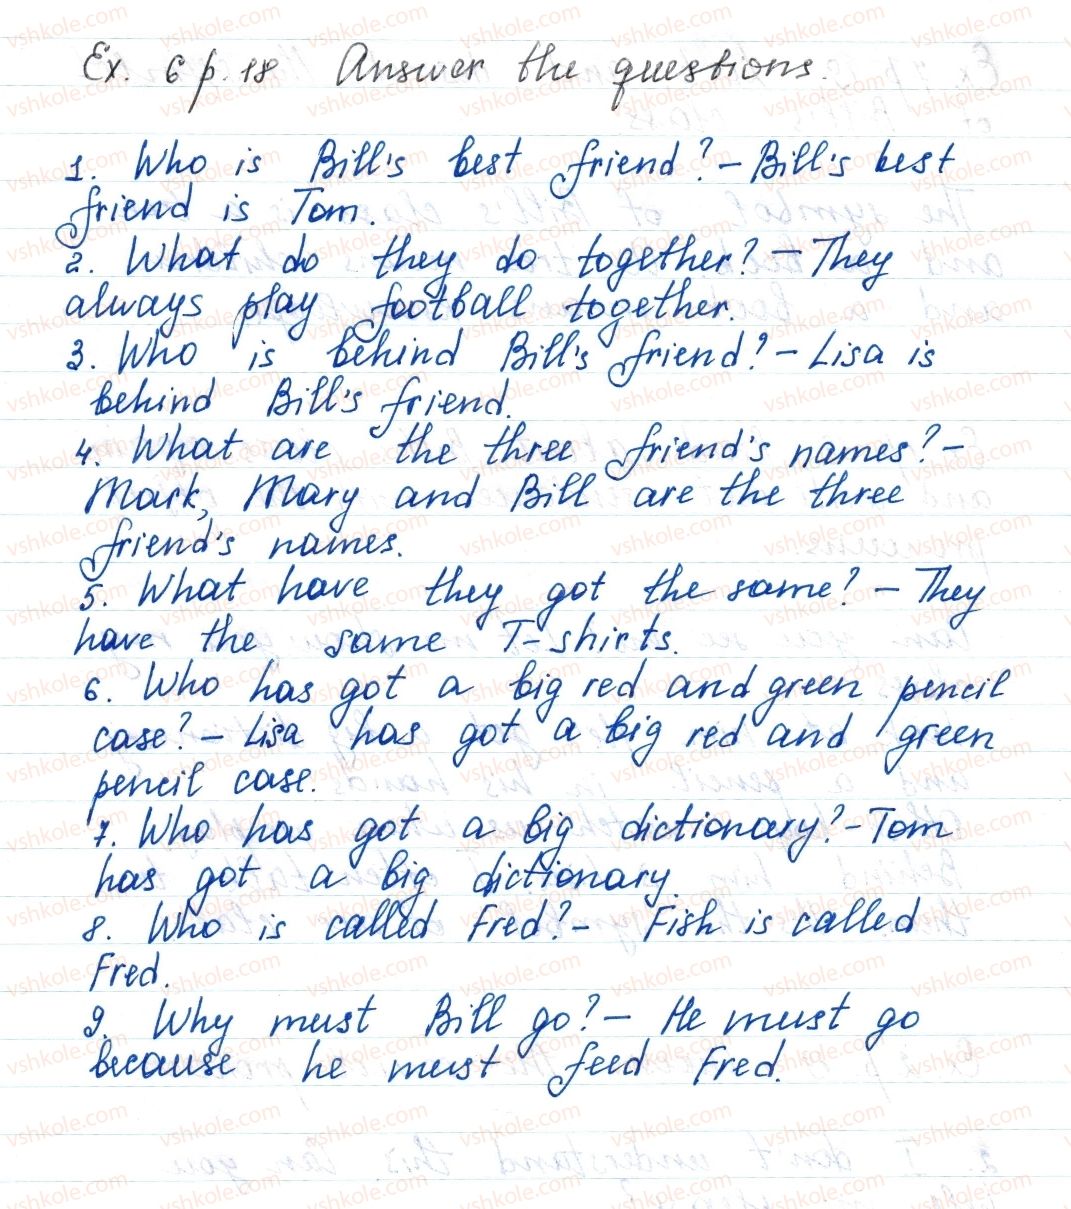 Ex. 6 p. 18 Answer the questions.
1. Who is Bill's best friend? – Bill's best
friend is Tom.
2. What do they do together? – They
always play football together.
3. Who is behind Bill's friend? – Lisa is
behind Bill's friend.
4. What are the three friend's names? –
Mark, Mary and Bill are the three
friend's names.
5. What have they got the same? – They
have the same T-shirts.
6. Who has got a big red and green pencil
case? – Lisa has got a big red and green
pencil case.
7. Who has got a big dictionary? – Tom
has got a big dictionary.
8. Who is called Fred? – Fish is called
Fred.
9. Why must Bill go? – He must go
because he must feed Fred.
vshkole.com